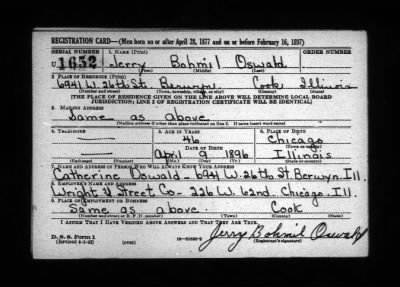 REGISTRATION CARD—(Men born on or after April 28, 1877 and on or before February 16, 1897)
SERIAL NUMBER 1. NAME (Print) ORDER NUMBER
U 1652 Jerry Bohmil Oswald
(First) (Middle) (Last)
2. PLACE OF RESIDENCE (Print)
6941 W. 26th St. Berwyn Cook Illinois
(Number and street) (Town, township, village, or city) (County) (State)
[THE PLACE OF RESIDENCE GIVEN ON THE LINE ABOVE WILL DETERMINE LOCAL BOARD
JURISDICTION; LINE 2 OF REGISTRATION CERTIFICATE WILL BE IDENTICAL]
3. MAILING ADDRESS
Same as above
(Mailing address if other than place indicated on line 2. If same insert word same)
4. TELEPHONE 5. AGE IN YEARS 6. PLACE OF BIRTH
46 Chicago
DATE OF BIRTH (Town or county)
April 9 1896 Illinois
(Mo.) (Day) (Yr.) (State or country)
7. NAME AND ADDRESS OF PERSON WHO WILL ALWAYS KNOW YOUR ADDRESS
Catherine Oswald - 6941 W. 26th St Berwyn, Ill.
8. EMPLOYER'S NAME AND ADDRESS
Wright & Street Co. - 226 W. 62nd. Chicago. Ill.
9. PLACE OF EMPLOYMENT OR BUSINESS
Same as above. Cook
(Number and street or R. F. D. number) (Town) (County) (State)
I AFFIRM THAT I HAVE VERIFIED ABOVE ANSWERS AND THAT THEY ARE TRUE.
D. S. S. Form 1
(Revised 4-1-42) Jerry Bohmil Oswald
(Registrant's signature)